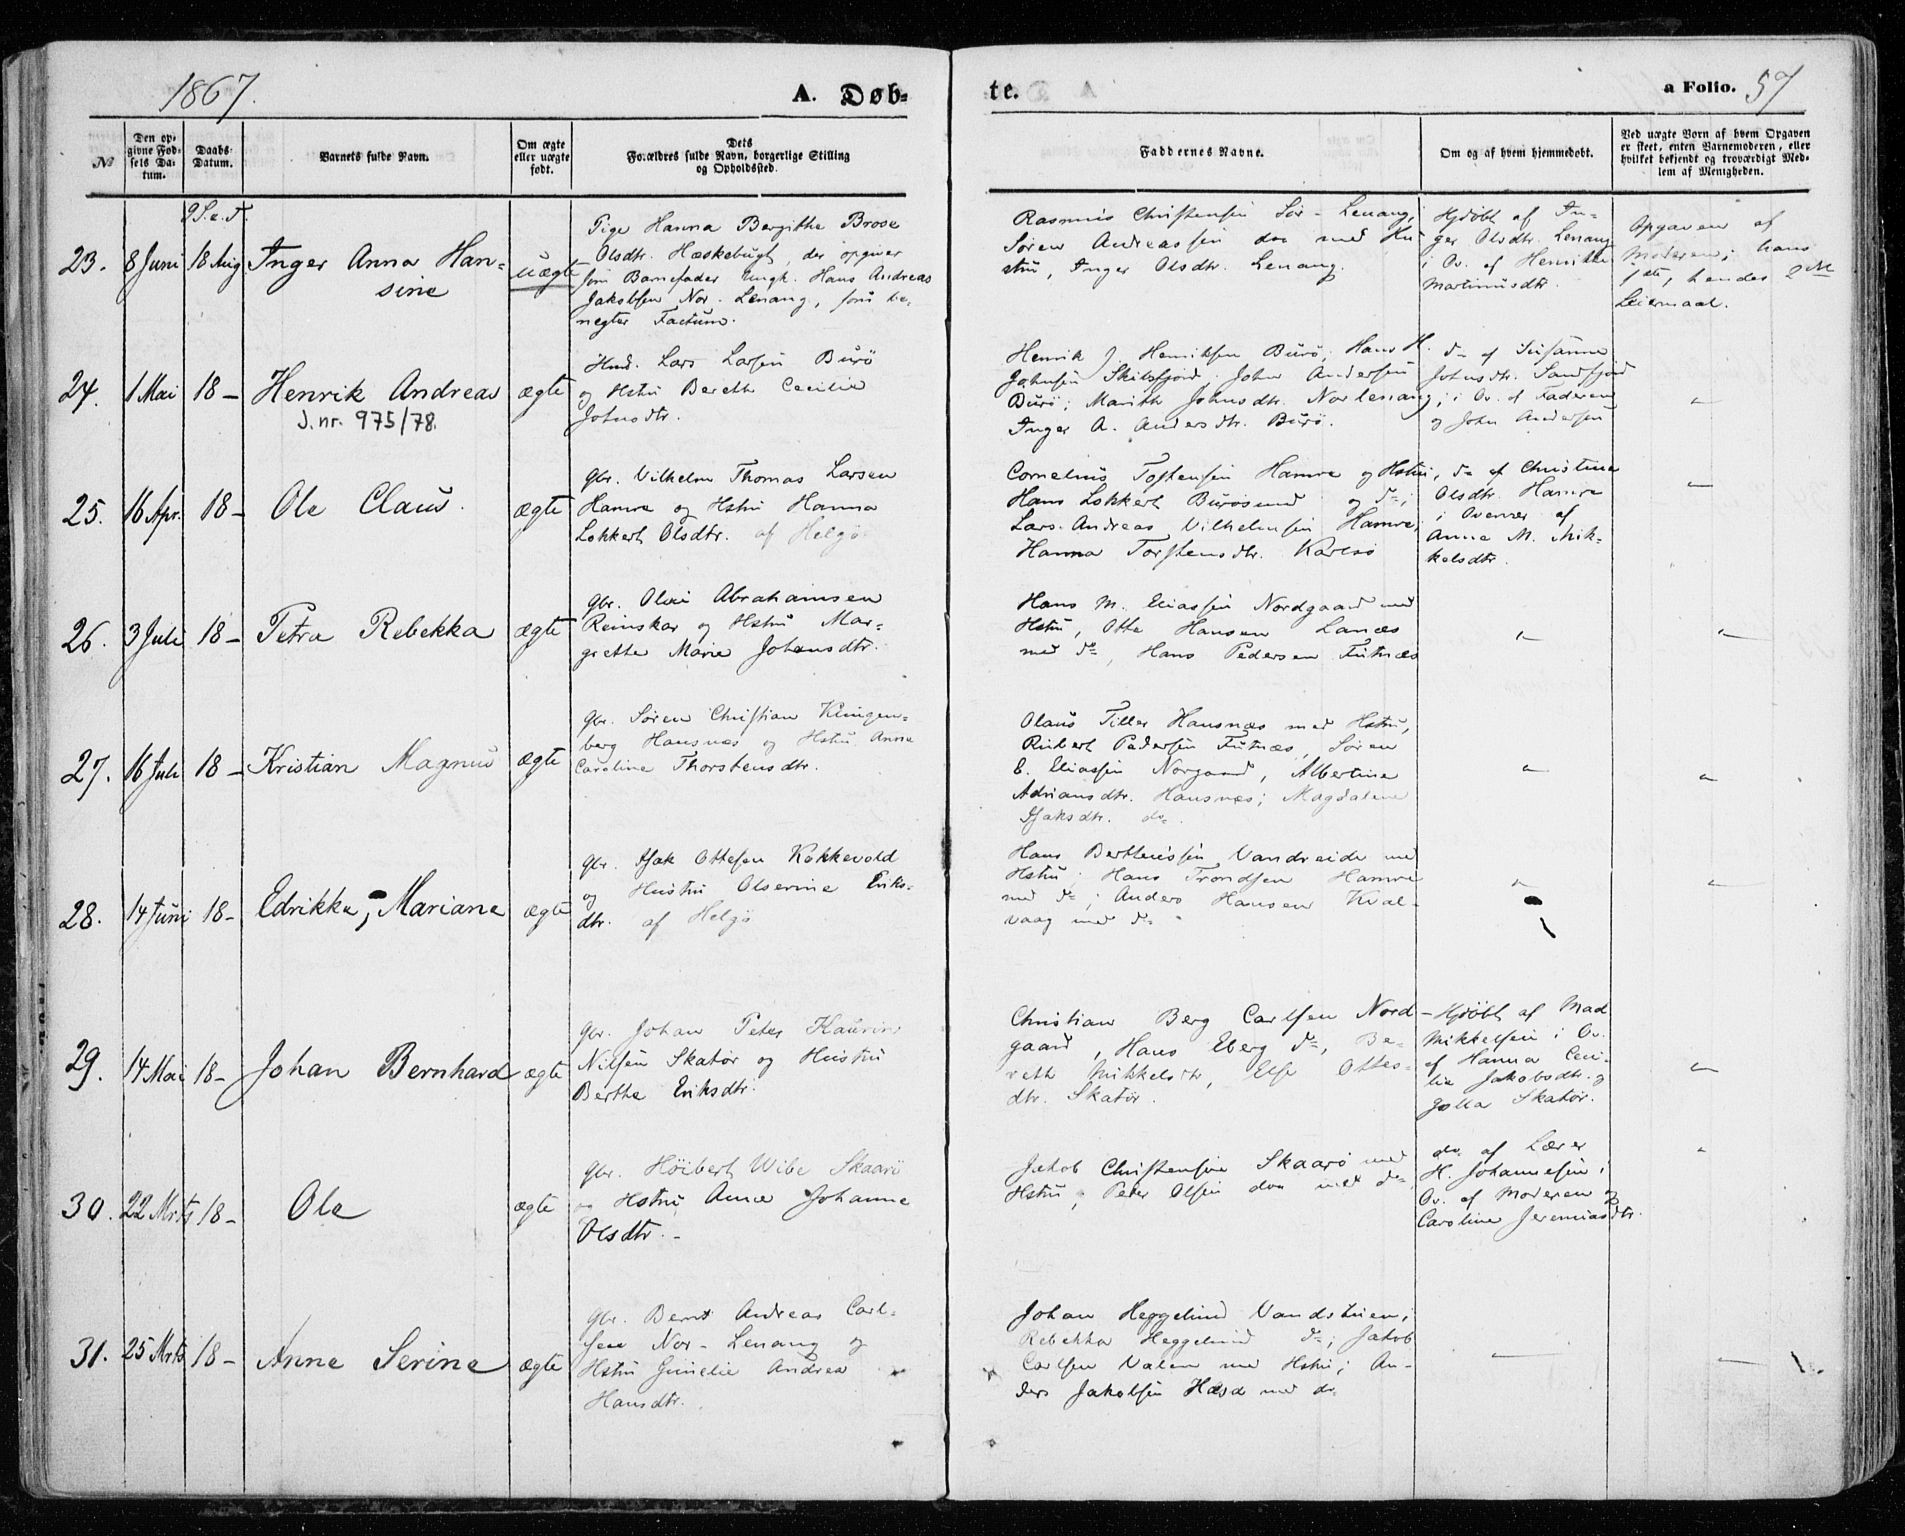 1867.
A. Døb=
te.
a Folio. 57
№
Den op=
givne Fød=
sels Da=
tum.
Daabs=
Datum.
Barnets fulde Navn.
Om ægte
eller uægte
født.
Dets
Forældres fulde Navn, borgerlige Stilling
og Opholdssted.
Faddernes Navne.
Om og af hvem hjemmedøbt.
Ved uægte Børn af hvem Opgaven
er skeet, enten Barnemoderen, eller
hvilket bekjendt og troværdigt Med=
lem af Menigheden.
9 S. e. T.
23. 8 Juni 18 Aug Inger Anna Han-
sine
uægte
Pige Hanna Bergitha Brose
Olsdtr. Hæskebugt, der opgiver
som Barnefader Ungk. Hans Andreas
Jakobsen Nor. Lenang, som be-
negter Factum.
Rasmus Christensen Sør-Lenang,
Søren Andreassen do med Hu
stru, Inger Olsdtr. Lenang.
Hjdøbt af In-
ger Olsdtr. Lenang
i Ov. af Henrikke
Martinusdtr.
Opgaven af
Moderen; hans
1ste, hendes 2det
Leiermaal.
24. 1 Mai 18 - Henrik Andreas
J.nr. 975/78.
ægte
Hmd. Lars Larsen Burø
og Hstru Bereth Cecilie
Johnsdtr.
Henrik J. Henriksen Burø; Hans H.
Johnsen Skibsfjord; John Andersen
Burø; Marith Johnsdtr. Norlenang;
Inger A. Andersdtr. Burø.
do af Susanne
Johnsdtr. Sandfjord
i Ov. af Faderen
og John Andersen
"
25. 16 Apr. 18 - Ole Claus.
ægte
Gbr. Vilhelm Thomas Larsen
Hamre og Hstru Hanna
Lokkert Olsdtr. af Helgø
Cornelius Tostensen Hamre og Hstru,
Hans Lokkert Burøsund og do;
Lars Andreas Vilhelmsen Hamre;
Hanna Torstensdtr. Karlsø
do af Christine
Olsdtr. Hamre
i Overvær af
Anne M. Mik-
kelsdtr.
"
26. 3 Juli 18 - Petra Rebekka
ægte
Gbr. Olai Abrahamsen
Reinskar og Hstru Mar-
grethe Marie Johansdtr.
Hans M. Eliassen Nordgaard med
Hstru, Otto Hansen Lanæs
med do, Hans Pedersen Futnæs
"
"
27. 16 Juli 18 - Kristian Magnus
ægte
Gbr. Søren Christian Klingen-
berg Hansnæs og Hstru Anne
Caroline Thorstensdtr.
Olaus Tiller Hansnæs med Hstru,
Rubert Pedersen Futnæs, Søren
E. Eliassen Norgaard, Albertine
Adriansdtr. Hansnæs; Magdalene
Isaksdtr. do.
"
"
28. 14 Juni 18 - Edrikke, Mariane
ægte
Gbr. Isak Ottesen Kokkevold
og Hustru Olserine Eriks-
dtr. af Helgø
Hans Bertheussen Vandreide med
Hstru; Hans Trondsen Hamre
med do; Anders Hansen Kval-
vaag med do
"
"
29. 14 Mai 18 - Johan Bernhard
ægte
Gbr. Johan Peter Kaurin
Nilsen Skatør og Hustru
Berthe Eriksdtr.
Christian Berg Carlsen Nord
gaard, Hans Eberg do, Be-
reth Mikkelsdtr, Else Ottes-
dtr. Skatør.
- Hjdøbt af Mad
Mikkelsen i Ov.
af Hanna Ceci-
lie Jakobsdtr. og
Golla Skatør.
"
30. 22 Mrts 18 - Ole
ægte
Gbr. Høibert Wibe Skaarø
og Hstru Anne Johanne
Olsdtr. -
Jakob Christensen Skaarø med
Hstru, Peter Olsen do med do
do. af Lærer
H. Johannesen i
Ov. af Moderen og
Caroline Jeremiasdtr.
"
31. 25 Mrts 18 - Anne Serine
ægte
Gbr. Bernt Andreas Carl-
sen Nor-Lenang og
Hstru Gunelie Andrea
Hansdtr.
Johan Heggelund Vandstuen;
Rebekka Heggelund do; Jakob
Carlsen Valen med Hstru; An-
ders Jakobsen Hæsd med do
"
"